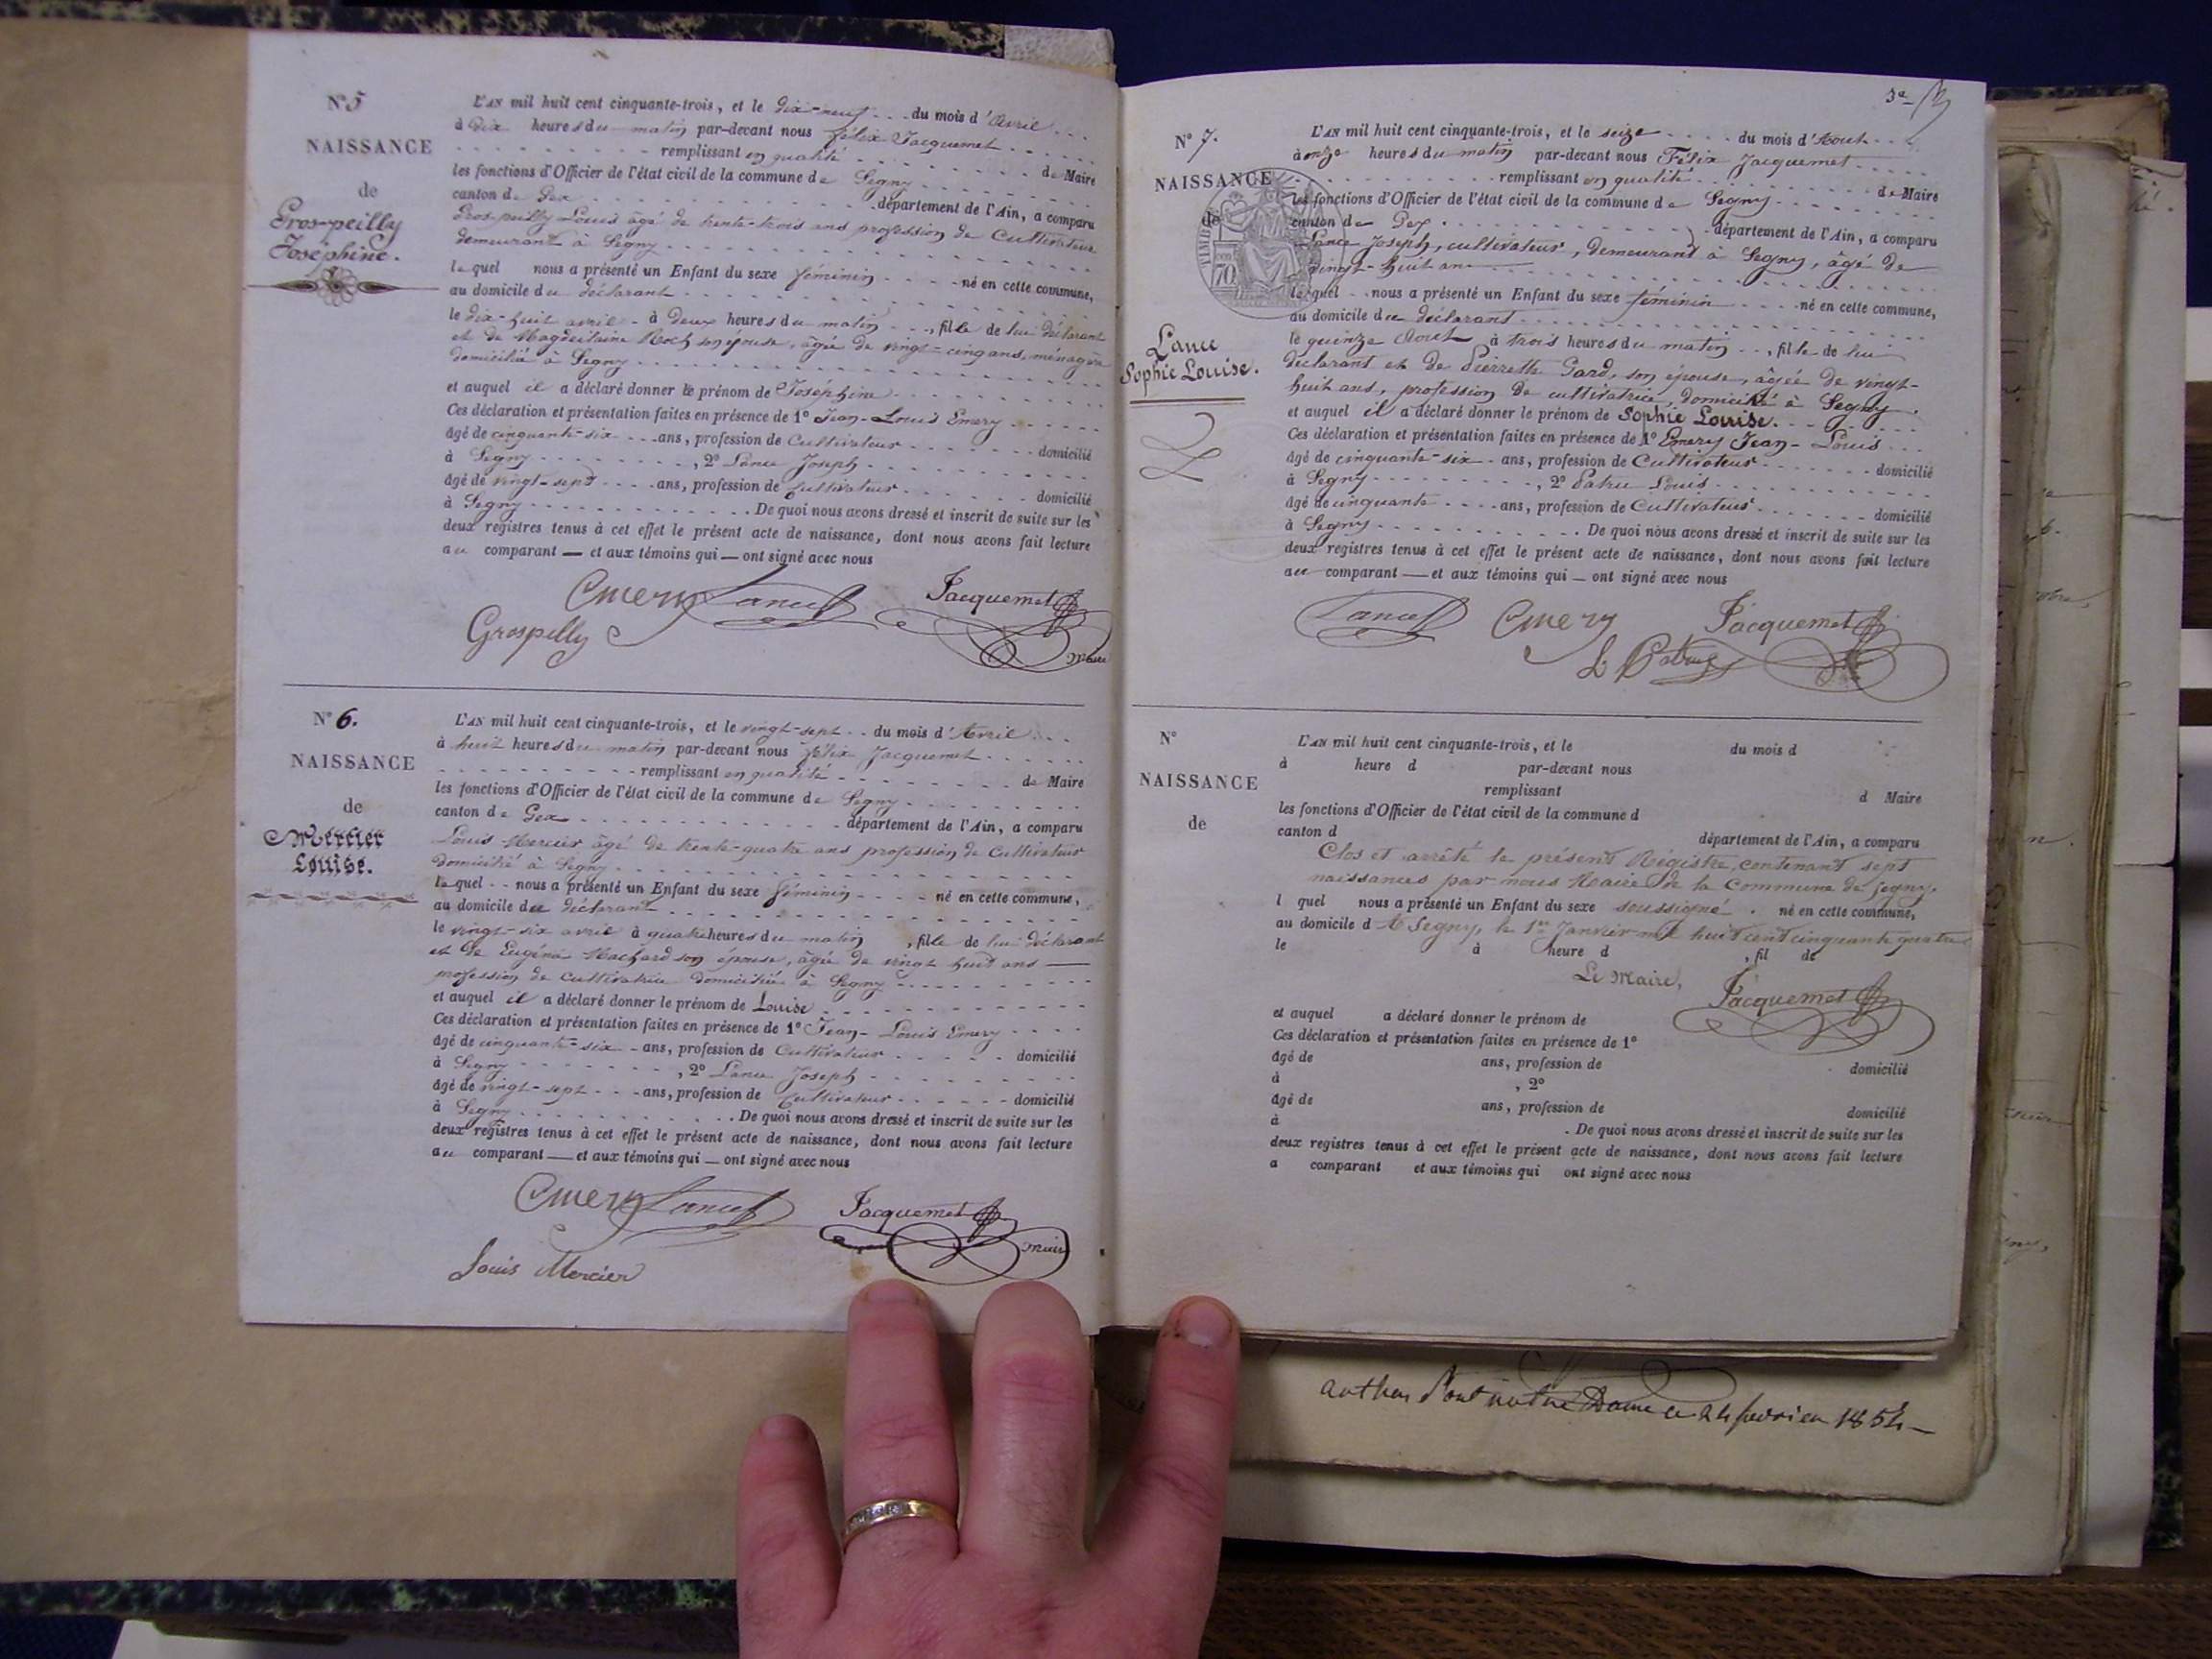 N° 5
NAISSANCE
de
Gros-peilly
Joséphine.
L'AN mil huit cent cinquante-trois, et le dix-neuf du mois d'Avril
à dix heures du matin par-devant nous félix Jacquemet
remplissant en qualité de Maire
les fonctions d'Officier de l'état civil de la commune de Segny
canton de Gex département de l'Ain, a comparu
Gros-peilly Louis âgé de trente-trois ans profession de Cultivateur
demeurant à Segny
lequel nous a présenté un Enfant du sexe féminin né en cette commune,
au domicile du déclarant
le dix-huit avril à deux heures du matin, fille de lui déclarant
et de Magdeilaine Roch son épouse, âgée de vingt-cinq ans, ménagère
domiciliée à Segny
et auquel il a déclaré donner le prénom de Joséphine
Ces déclaration et présentation faites en présence de 1° Jean-Louis Emery
âgé de cinquante-six ans, profession de Cultivateur domicilié
à Segny, 2° Lance Joseph
âgé de vingt-sept ans, profession de Cultivateur domicilié
à Segny. De quoi nous avons dressé et inscrit de suite sur les
deux registres tenus à cet effet le présent acte de naissance, dont nous avons fait lecture
au comparant — et aux témoins qui — ont signé avec nous
Emery Lance Jacquemet
Grospilly maire
N° 6.
NAISSANCE
de
Mercier
Louise.
L'AN mil huit cent cinquante-trois, et le vingt-sept du mois d'Avril
à huit heures du matin par-devant nous félix Jacquemet
remplissant en qualité de Maire
les fonctions d'Officier de l'état civil de la commune de Segny
canton de Gex département de l'Ain, a comparu
Louis Mercier âgé de trente-quatre ans profession de Cultivateur
domicilié à Segny
lequel nous a présenté un Enfant du sexe féminin né en cette commune,
au domicile du déclarant
le vingt-six avril à quatre heures du matin, fille de lui déclarant
et de Eugénie Machard son épouse, âgée de vingt huit ans —
profession de cultivatrice domiciliée à Segny
et auquel il a déclaré donner le prénom de Louise
Ces déclaration et présentation faites en présence de 1° Jean-Louis Emery
âgé de cinquante-six ans, profession de Cultivateur domicilié
à Segny, 2° Lance Joseph
âgé de vingt-sept ans, profession de Cultivateur domicilié
à Segny. De quoi nous avons dressé et inscrit de suite sur les
deux registres tenus à cet effet le présent acte de naissance, dont nous avons fait lecture
au comparant — et aux témoins qui — ont signé avec nous
Emery Lance Jacquemet
maire
Louis Mercier
3e
N° 7.
NAISSANCE
de
Lance
Sophie Louise.
70
L'AN mil huit cent cinquante-trois, et le seize du mois d'Aout
à onze heures du matin par-devant nous Félix Jacquemet
remplissant en qualité de Maire
les fonctions d'Officier de l'état civil de la commune de Segny
canton de Gex département de l'Ain, a comparu
Lance Joseph, cultivateur, demeurant à Segny, âgé de
vingt-huit ans
lequel nous a présenté un Enfant du sexe féminin né en cette commune,
au domicile du déclarant
le quinze Aout à trois heures du matin, fille de lui
déclarant et de Pierrette Gard, son épouse, âgée de vingt-
huit ans, profession de cultivatrice, domicilié à Segny.
et auquel il a déclaré donner le prénom de Sophie Louise.
Ces déclaration et présentation faites en présence de 1° Emery Jean-Louis
âgé de cinquante-six ans, profession de Cultivateur domicilié
à Segny, 2° Patru Louis
âgé de cinquante ans, profession de Cultivateur domicilié
à Segny. De quoi nous avons dressé et inscrit de suite sur les
deux registres tenus à cet effet le présent acte de naissance, dont nous avons fait lecture
au comparant — et aux témoins qui — ont signé avec nous
Lance Emery Jacquemet
L Patru
N°
NAISSANCE
de
L'AN mil huit cent cinquante-trois, et le du mois d
à heure d par-devant nous
remplissant d Maire
les fonctions d'Officier de l'état civil de la commune d
canton d département de l'Ain, a comparu
Clos et arrêté le présent Régistre, contenant sept
naissances par nous Maire de la Commune de Segny,
l quel nous a présenté un Enfant du sexe soussigné. né en cette commune,
au domicile d A Segny, le 1er Janvier mil huit cent cinquante quatre
le à heure d , fil de
Le Maire, Jacquemet
et auquel a déclaré donner le prénom de
Ces déclaration et présentation faites en présence de 1°
âgé de ans, profession de domicilié
à , 2°
âgé de ans, profession de domicilié
à . De quoi nous avons dressé et inscrit de suite sur les
deux registres tenus à cet effet le présent acte de naissance, dont nous avons fait lecture
a comparant et aux témoins qui ont signé avec nous
notre Dame ce 24 fevrier 1854